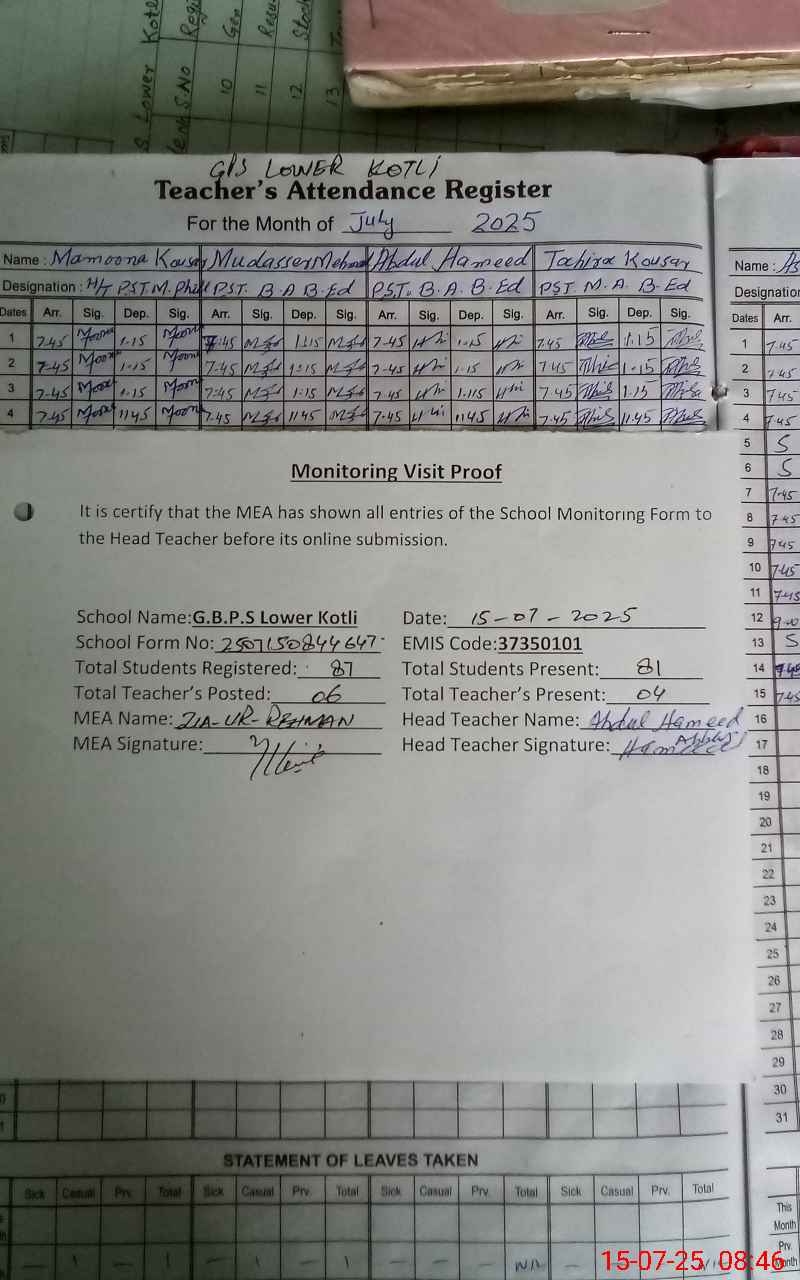 S. Lower Kotl
S.No Regi
10 Gen
11 Resu
12 Stock
13
GPS LOWER KOTLI
Teacher's Attendance Register
For the Month of July 2025
Name : Mamoona Kousar Mudasser Mehmood Abdul Hameed Tahira Kousar
Designation : H/T P.S.T M. Phil P.S.T. B A B.Ed P.S.T. B. A. B. Ed PST M. A. B. Ed
Dates Arr. Sig. Dep. Sig. Arr. Sig. Dep. Sig. Arr. Sig. Dep. Sig. Arr. Sig. Dep. Sig.
1 7.45 Moona 1.15 Moona 7:45 1:15 7-45 1.15 7.45 1.15
2 7-45 Moona 1.15 Moona 7-45 1:15 7-45 1.15 7.45 1.15
3 7-45 Moona 1.15 Moona 7:45 1:15 7-45 1.115 7.45 1.15
4 7-45 Moona 1145 Moona 7.45 1145 7-45 1145 7.45 11.45
Monitoring Visit Proof
It is certify that the MEA has shown all entries of the School Monitoring Form to
the Head Teacher before its online submission.
School Name:G.B.P.S Lower Kotli Date: 15-07-2025
School Form No: 2507150844647 EMIS Code:37350101
Total Students Registered: 87 Total Students Present: 81
Total Teacher's Posted: 06 Total Teacher's Present: 04
MEA Name: ZIA-UR-REHMAN Head Teacher Name: Abdul Hameed
MEA Signature: Head Teacher Signature: Hameed
Name :
Designation
Dates Arr.
1 7.45
2 7.45
3 7.45
4 7.45
5 S
6 S
7 7.45
8 7.45
9 7.45
10 7.45
11 7.45
12 9.00
13 S
14 7.45
15 7.45
16
17
18
19
20
21
22
23
24
25
26
27
28
29
30
31
STATEMENT OF LEAVES TAKEN
Sick Casual Prv. Total Sick Casual Prv. Total Sick Casual Prv. Total Sick Casual Prv. Total
This
Month
Prv.
Month
— 1 — 1 — 1 — 1 — — — Nil — Nil
15-07-25 08:46